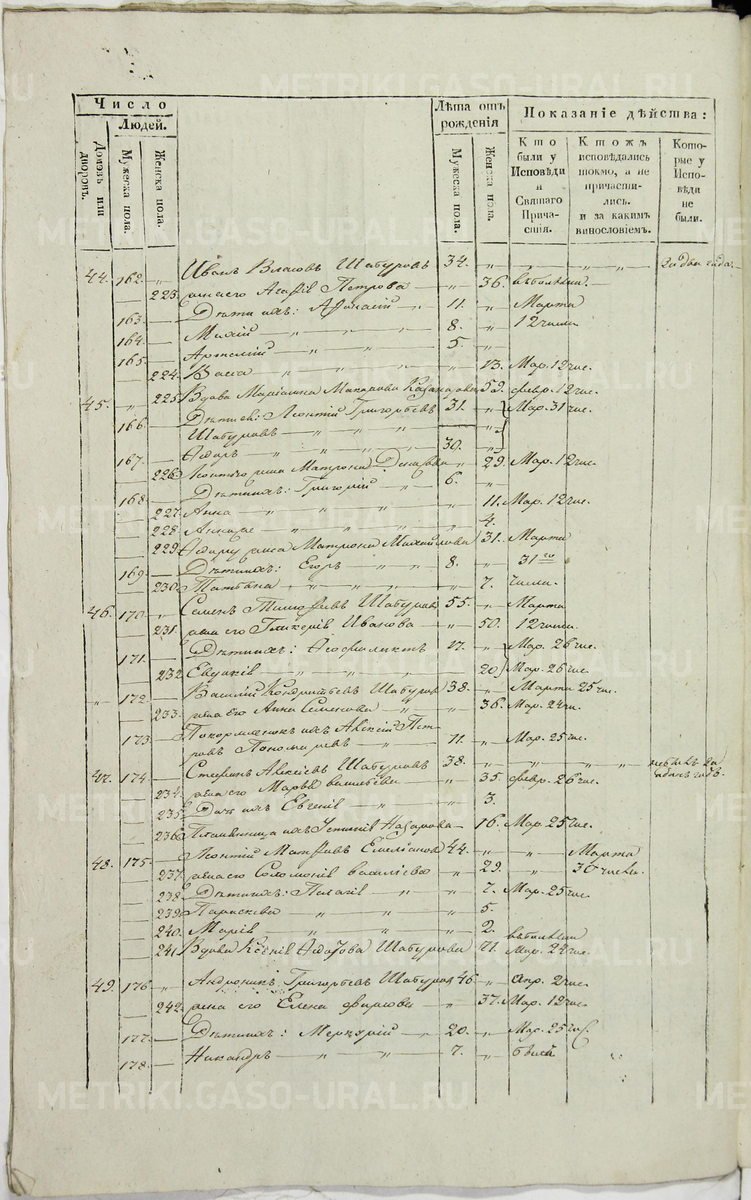 Число
Людей.
Домовъ или дворовъ.
Мужеска пола.
Женска пола.
Лѣта отъ рожденія
Мужеска пола.
Женска пола.
Показаніе дѣйства:
Кто были у Исповѣди и Святаго Причастія.
Ктожъ исповѣдались токмо, а не причастились. и за какимъ винословіемъ.
Которые у Исповѣди не были.
44. 162. Иванъ Власовъ Шабуровъ 34. „ „ „ „
223. жена его Агафія Петрова „ 36.
163. Дѣти ихъ: Афанасій „ 11. „ Марта
164. „ „ 8. „ 12 числа
165. Артемій „ „ 5. „
224. Васса „ „ „ 13. Мар. 12 чис.
45. „ 225. Вдова Маріамна Макарова 59. февр. 12 чис.
166. Дѣти ея: Леонтій Григорьевъ 31. „ Мар. 31 чис.
Шабуровъ „ „ „
167. Ѳедоръ „ „ „ 30. „
226. Леонтія жена Матрона „ 29. Мар. 12 чис.
168. Дѣти ихъ: Григорій „ 6. „
227. Анна „ „ „ „ 11. Мар. 12 чис.
228. „ „ „ „ 4.
229. Ѳедора жена Матрона Михайлова 31. Марта
169. Дѣти ихъ: Егоръ „ „ 8. „ 31го
230. Татьяна „ „ „ „ 7. числа.
46. 170. „ Семенъ Тимофѣевъ Шабуровъ 55. „ Марта
231. жена его Гликерія Иванова „ 50. 12 числа
171. Дѣти ихъ: Ѳеофилактъ 17. „ Мар. 26 чис.
232. Евдокія „ „ „ 20 Мар. 26 чис.
„ 172. Василій Кондратьевъ Шабуровъ 38. „ Марта 25 чис.
233. жена его Анна Семенова „ „ 36. Мар. 24 чи.
173. Покормленокъ ихъ Алексій Пет-
ровъ Пономаревъ „ 11. „ Мар. 25 чис.
47. 174. Стефанъ Алексіевъ Шабуровъ 38. „ „ „ „
234. жена его Марфа Васильева „ 35. февр. 26 чис.
235. Дочь ихъ Евгенія „ „ 3.
236. Племянница ихъ Устинія Назарова 16. Мар. 25 чис.
48. 175. Леонтій Матфѣевъ Емельяновъ 44. „ „ Марта
237. жена его Соломонія Васильева „ 29. „ 30 числа.
238. Дѣти ихъ: Пелагія „ „ 7. Мар. 25 чис.
239. Параскева „ „ „ 5.
240. Марія „ „ „ 2.
241. Вдова Ксенія Шабурова 71. Мар. 24 чис.
49. 176. „ Андроникъ Григорьевъ Шабуровъ 46. „ Апр. 2 чис.
242. жена его Елена Фирсова „ 37. Мар. 12 чис.
177. Дѣти ихъ: Меркурій „ 20. „ Мар. 25 чис.
178. Никандръ „ „ 7. „
METRIKI.GASO-URAL.RU